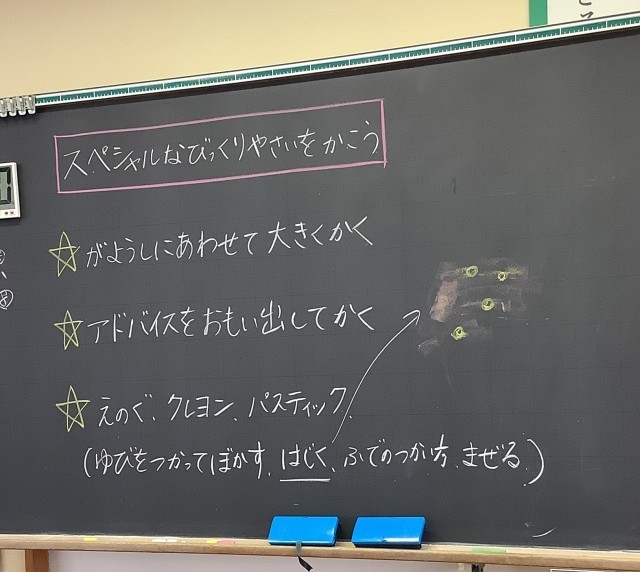 スペシャルなびっくりやさいをかこう
☆がようしにあわせて大きくかく
☆アドバイスをおもい出してかく
☆えのぐ、クレヨン、パスティック、
(ゆびをつかってぼかす、はじく、ふでのつかい方、まぜる。)